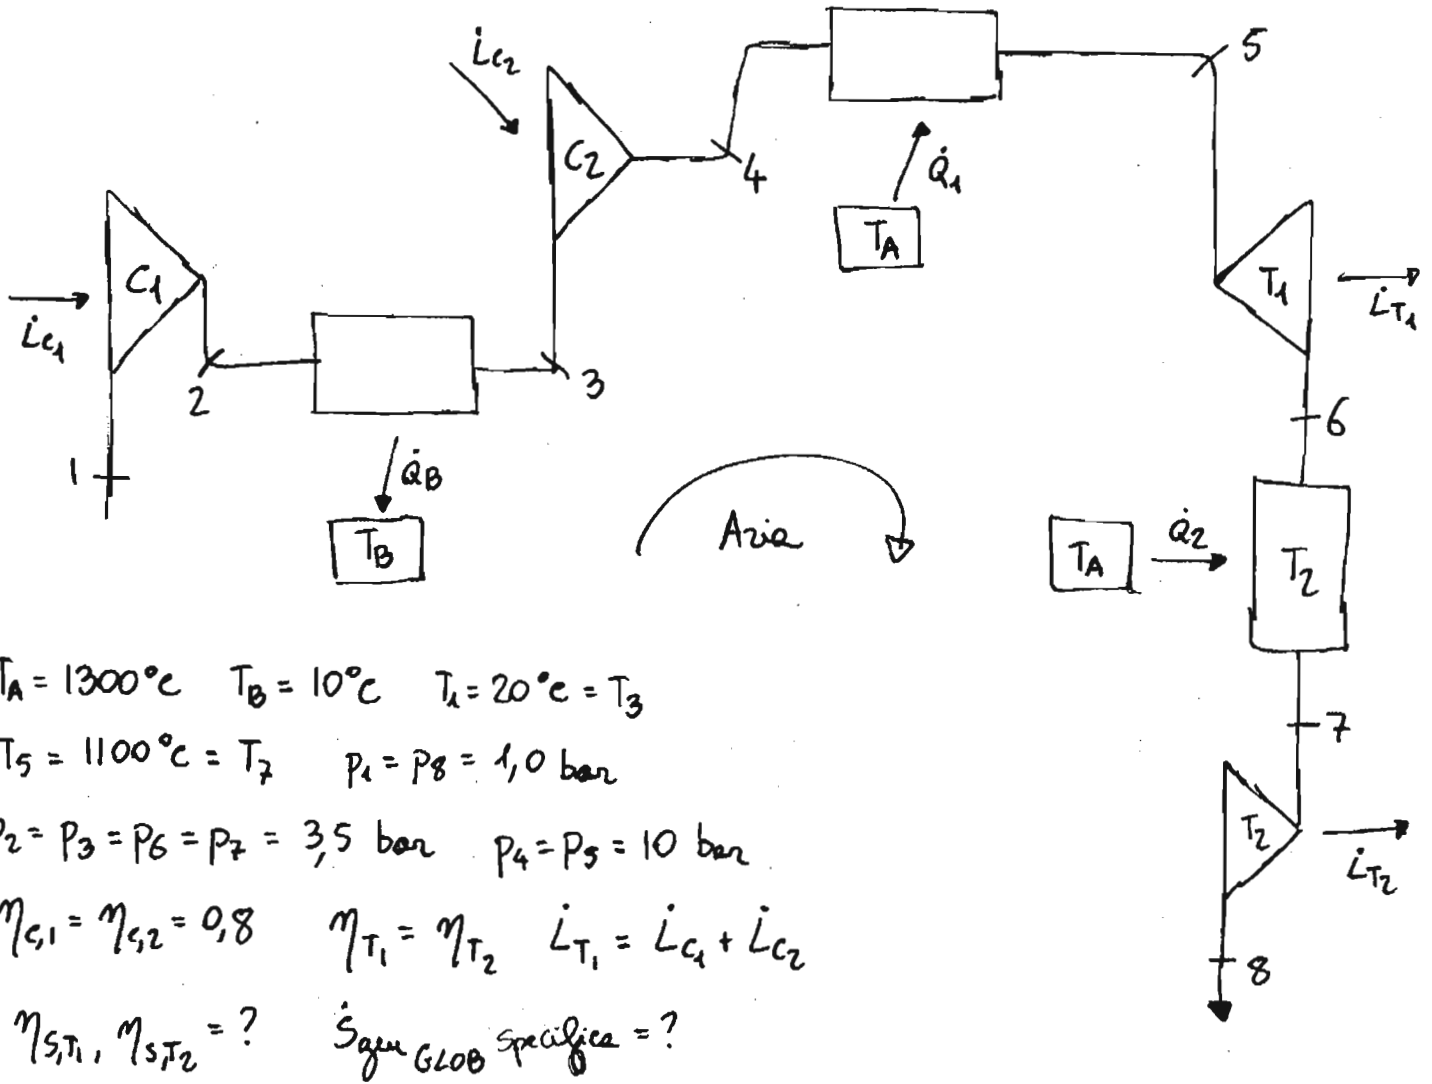 L̇c₂
5
C2
4
Q̇₁
T_A
C1
T₁
L̇_T₁
L̇c₁
2
3
6
1
Q̇_B
T_B
Aria
T_A
Q̇₂
T₂
7
T_A = 1300°C T_B = 10°C T₁ = 20°C = T₃
T₅ = 1100°C = T₇ p₁ = p₈ = 1,0 bar
p₂ = p₃ = p₆ = p₇ = 3,5 bar p₄ = p₅ = 10 bar
T₂
L̇_T₂
η_c,1 = η_c,2 = 0,8 η_T₁ = η_T₂ L̇_T₁ = L̇_C₁ + L̇_C₂
8
η_S,T₁, η_S,T₂ = ? Ṡgen GLOB specifica = ?